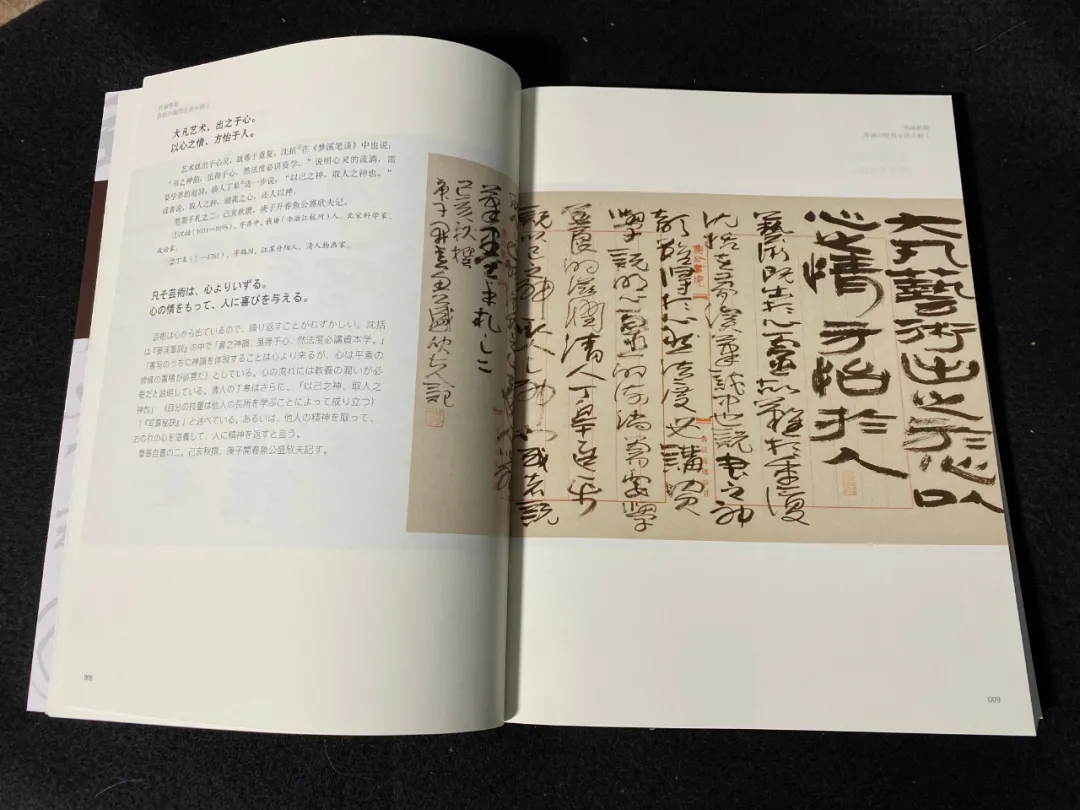 大凡艺术，出之于心。
以心之情，方怡于人。
艺术既出于心灵，故难于重复，沈括①在《梦溪笔谈》中也说：
“书之神韵，虽得于心，然法度必讲资学。”说明心灵的流淌，需
要学养的滋润，清人丁皋②进一步说：“以己之神，取人之神也。”
或者说，取人之神，滋我之心，还人以神。
笔墨手札之二 己亥秋撰，庚子开春鱼公盛欣夫记。
①沈括（1031—1095），字存中，钱塘（今浙江杭州）人，北宋科学家、
政治家。
②丁皋（？—1761），字鹤洲，江苏丹阳人，清人物画家。
凡そ芸術は、心よりいずる。
心の情をもって、人に喜びを与える。
芸術は心から出ているので、繰り返すことがむずかしい。沈括
は『夢渓筆談』の中で「書之神韻、虽得于心、然法度必講資本学。」
「書写のうちに神韻を体現することは心より来るが、心は平素の
修練の蓄積が必要だ）としている。心の流れには教養の潤いが必
要だと説明している。清人の丁皋はさらに、「以己之神、取人之
神也」（自分の技量は他人の長所を学ぶことによって成り立つ）
（『写真秘訣』）と述べている。あるいは、他人の精神を取って、
おのれの心を滋養して、人に精神を返すと言う。
筆墨自書の二。己亥秋撰、庚子開春魚公盛欣夫記す。
008
大凡藝術出之於心以
心之情方怡於人
藝術既出於心靈故難於重復
沈括在夢溪筆談中也說書之神
韻雖得於心然法度必講資
學說明心靈的流淌需要學
養的滋潤清人丁皋進一步
說以己之神取人之神也或者說
筆墨手札之二
己亥秋撰
庚子開春魚公盛欣夫記
009